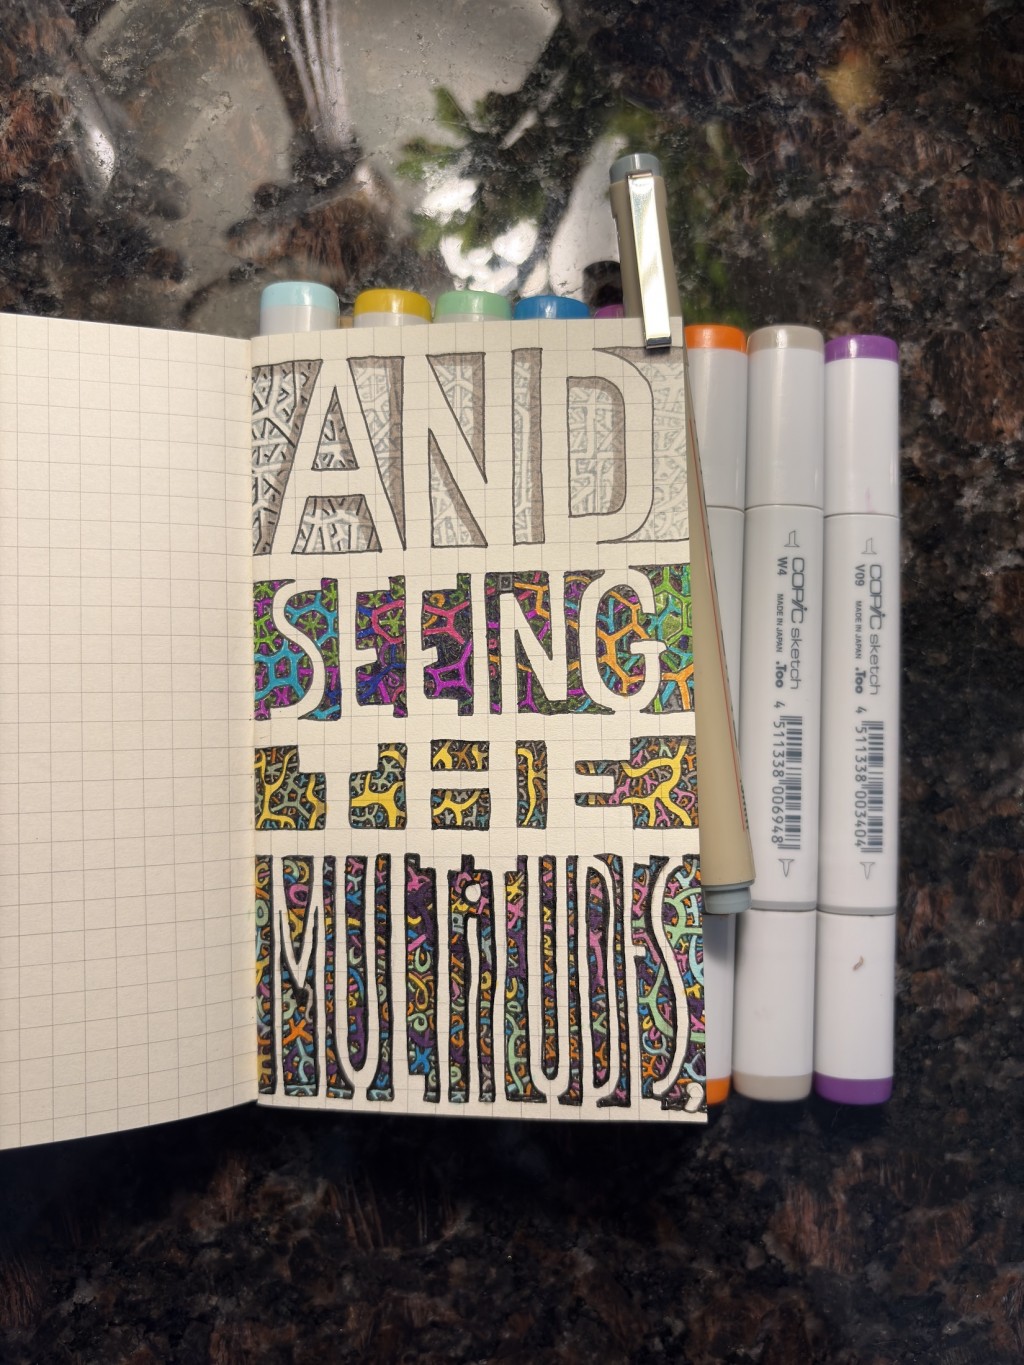 AND
SEEING
THE
MULTITUDES,
COPIC sketch
W4 MADE IN JAPAN .Too
4 511338 006948
COPIC sketch
V09 MADE IN JAPAN .Too
4 511338 003404